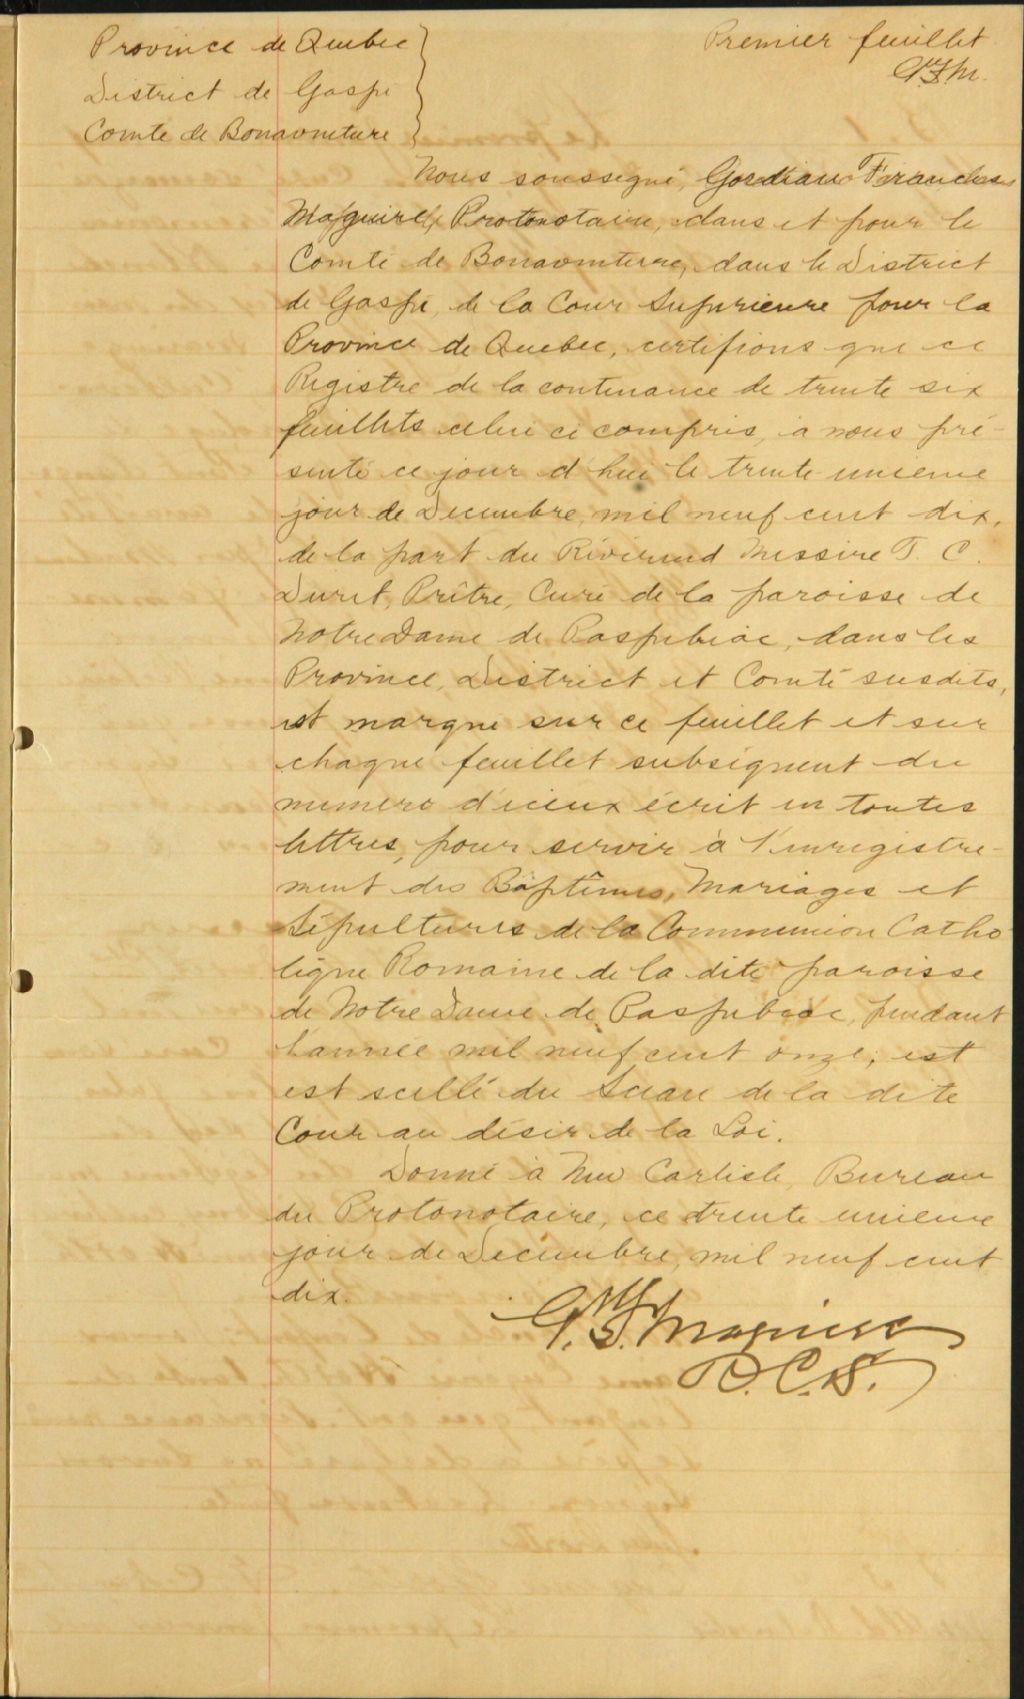 Province de Quebec
District de Gaspé
Comte de Bonaventure
Premier feuillet
G.F.M.
Nous soussegné, Gordian Franches
Maguire, Protonotaire, dans et pour le
Comté de Bonaventure, dans le District
de Gaspé, de la Cour Supérieure pour la
Province de Quebec, certifions que ce
Registre de la contenance de trente six
feuillets celui ci compris, a nous pré-
senté ce jour d'hui le trente unieme
jour de Decembre, mil neuf cent dix,
de la part du Révérend Messire T. C.
Duret, Prêtre, Curé de la paroisse de
Notre Dame de Paspebiac, dans les
Province, District et Comté susdits,
est marque sur ce feuillet et sur
chaque feuillet subséquent du
numero d'iceux écrit en toutes
lettres, pour servir à l'enregistre-
ment des Baptêmes, Mariages et
Sépultures de la Communion Catho-
lique Romaine de la dite paroisse
de Notre Dame de Paspebiac, pendant
l'année mil neuf cent onze; est
est scellé du Sceau de la dite
Cour au désir de la Loi.
Donné à New Carlisle, Bureau
du Protonotaire, ce trente unieme
jour de Decembre, mil neuf cent
dix.
G. F. Maguire
P.C.S.